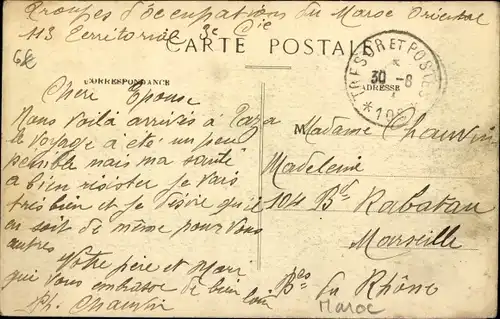 Troupes d'occupations du Maroc Oriental
113 Territorial 3e Cie
CARTE POSTALE
68
CORRESPONDANCE
ADRESSE
TRESOR ET POSTES
30 -8
Chere Epouse
Nous voilà arrivés à Taza
le voyage a été un peu
penible mais ma santé
a bien résister je vais
tres bien et je désire qu'il
en soit de même pour vous
autres
Votre père et Mari
qui vous embrasse de bien loin
Ph. Chauvin
Madame Chauvin
Madeleine
104 Bd Rabatau
Marseille
Bes du Rhône
Maroc